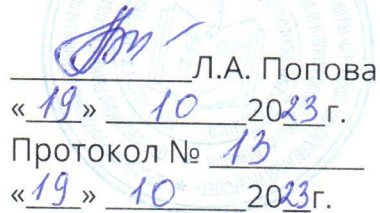 Л.А. Попова
«19» 10 2023 г.
Протокол № 13
«19» 10 2023 г.